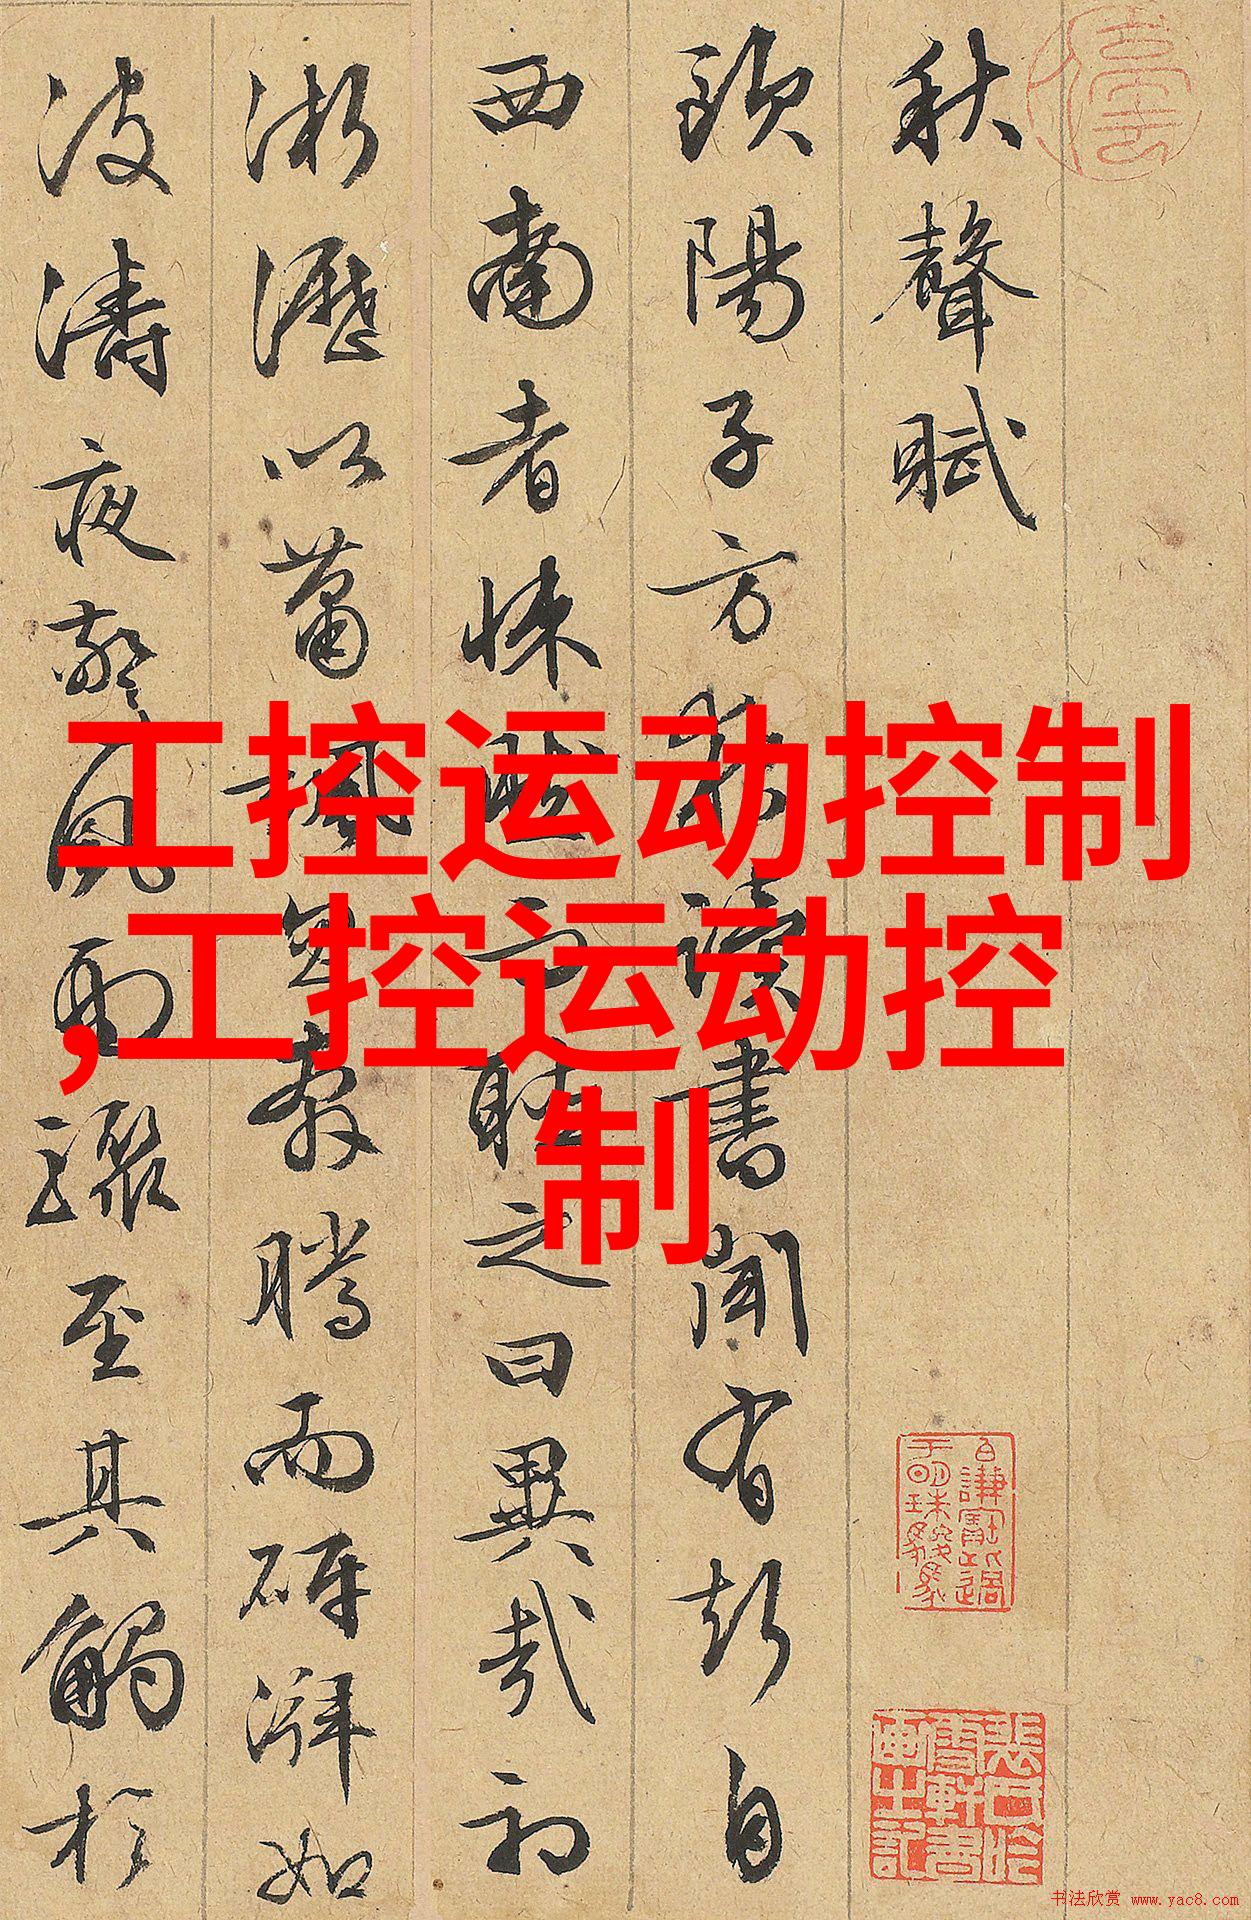 秋聲賦
歐陽子方夜讀書聞有聲自
西南者悚然而聽之曰異哉初
淅瀝以蕭颯忽奔騰而砰湃如
波濤夜驚風雨驟至其觸於
工控运动控制
,工控运动控
制
书法欣赏 www.yac8.com